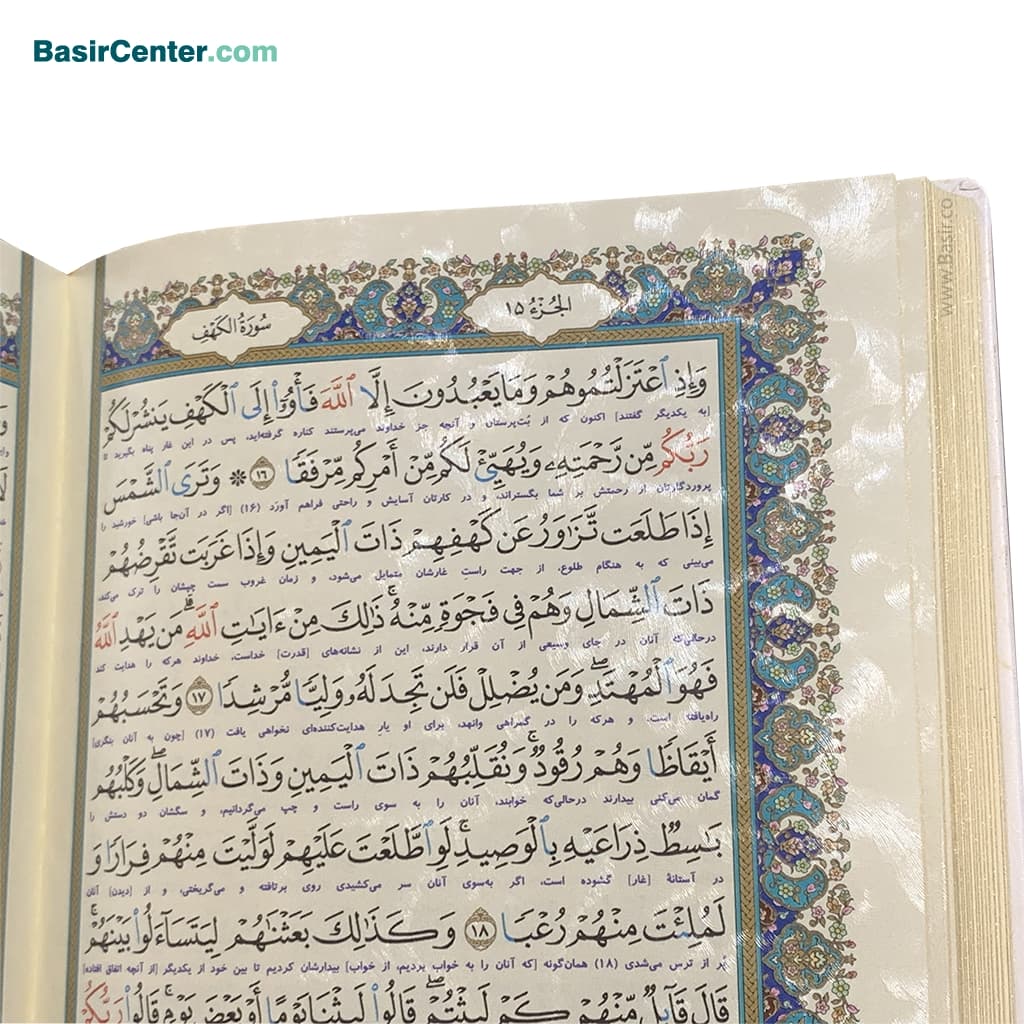 BasirCenter.com
www.Basir.co
سُورَةُ الكَهْفِ
الجُزءُ ١٥
وَإِذِ ٱعْتَزَلْتُمُوهُمْ وَمَا يَعْبُدُونَ إِلَّا ٱللَّهَ فَأْوُۥٓا۟ إِلَى ٱلْكَهْفِ يَنشُرْ لَكُمْ
[به یکدیگر گفتند] اکنون که از بُت‌پرستان و آنچه جز خداوند می‌پرستند کناره گرفته‌اید، پس در این غار پناه بگیرید تا
رَبُّكُم مِّن رَّحْمَتِهِۦ وَيُهَيِّئْ لَكُم مِّنْ أَمْرِكُم مِّرْفَقًا ١٦ ۞ وَتَرَى ٱلشَّمْسَ
پروردگارتان از رحمتش بر شما بگستراند، و در کارتان آسایش و راحتی فراهم آورَد (۱۶) [اگر در آن‌جا باشی] خورشید را
إِذَا طَلَعَت تَّزَٰوَرُ عَن كَهْفِهِمْ ذَاتَ ٱلْيَمِينِ وَإِذَا غَرَبَت تَّقْرِضُهُمْ
می‌بینی که به هنگام طلوع، از جهت راستِ غارشان متمایل می‌شود، و زمان غروب سمت چپشان را ترک می‌کند،
ذَاتَ ٱلشِّمَالِ وَهُمْ فِى فَجْوَةٍ مِّنْهُ ۚ ذَٰلِكَ مِنْ ءَايَٰتِ ٱللَّهِ ۗ مَن يَهْدِ ٱللَّهُ
درحالی‌که آنان در جای وسیعی از آن قرار دارند، این از نشانه‌های [قدرت] خداست، خداوند هرکه را هدایت کند
فَهُوَ ٱلْمُهْتَدِ ۖ وَمَن يُضْلِلْ فَلَن تَجِدَ لَهُۥ وَلِيًّا مُّرْشِدًا ١٧ وَتَحْسَبُهُمْ
راه‌یافته است، و هرکه را در گمراهی وانهد، برای او یار هدایت‌کننده‌ای نخواهی یافت (۱۷) [چون به آنان بنگری]
أَيْقَاظًا وَهُمْ رُقُودٌ ۚ وَنُقَلِّبُهُمْ ذَاتَ ٱلْيَمِينِ وَذَاتَ ٱلشِّمَالِ ۖ وَكَلْبُهُم
گمان می‌کنی بیدارند درحالی‌که خوابند، آنان را به سوی راست و چپ می‌گردانیم، و سگشان دو دستش را
بَٰسِطٌ ذِرَاعَيْهِ بِٱلْوَصِيدِ ۚ لَوِ ٱطَّلَعْتَ عَلَيْهِمْ لَوَلَّيْتَ مِنْهُمْ فِرَارًا وَ
در آستانهٔ [غار] گشوده است، اگر به‌سوی آنان سر می‌کشیدی روی برتافته و می‌گریختی، و از [دیدن] آنان
لَمُلِئْتَ مِنْهُمْ رُعْبًا ١٨ وَكَذَٰلِكَ بَعَثْنَٰهُمْ لِيَتَسَآءَلُوا۟ بَيْنَهُمْ ۚ
پُر از ترس می‌شدی (۱۸) همان‌گونه [که آنان را به خواب بردیم، از خواب] بیدارشان کردیم تا بین خود از یکدیگر [از آنچه اتفاق افتاده]
قَالَ قَآئِلٌ مِّنْهُمْ كَمْ لَبِثْتُمْ ۖ قَالُوا۟ لَبِثْنَا يَوْمًا أَوْ بَعْضَ يَوْمٍ ۚ قَالُوا۟ رَبُّكُمْ